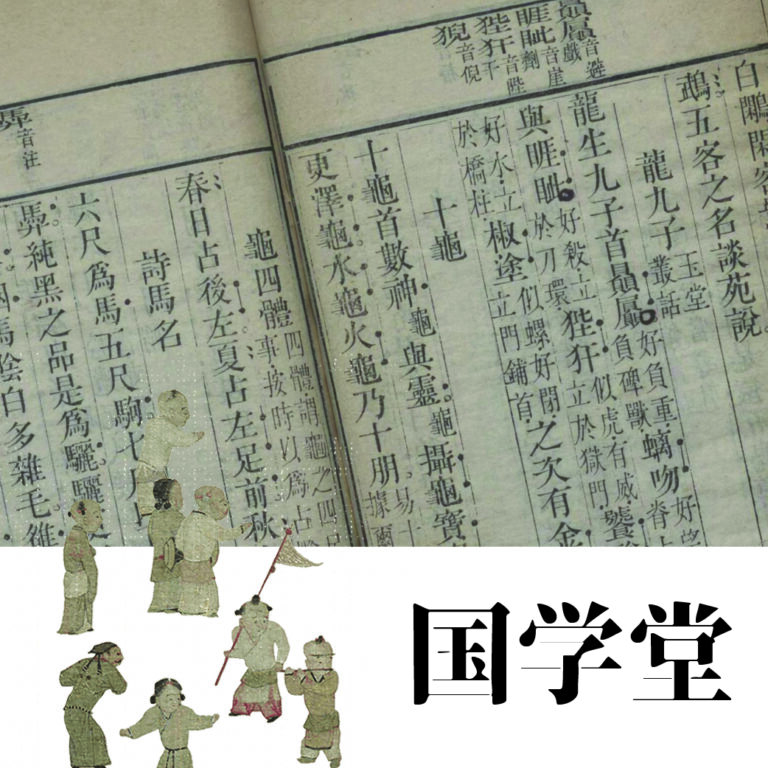 贔屭音避戲
睚眦音崖劑
狴犴音陛干
猊音倪
白鷴閑客
鵡五客之名談苑說
龍九子玉堂叢話
龍生九子首贔屭好負重負碑獸螭吻好望脊上
與睚眦好殺立於刀環狴犴似虎有威立於獄門饕
好水立於橋柱椒塗似螺好閉立門鋪首之次有金
十龜
十龜首數神龜與靈龜攝龜寶
更澤龜水龜火龜乃十朋易十據爾
馵音注
龜四體四體謂龜之四足事按時以爲占
春日占後左夏占左足前秋
詩馬名
六尺爲馬五尺駒七尺
馵純黑之品是爲驪驪
馬陰白多雜毛騅
国学堂